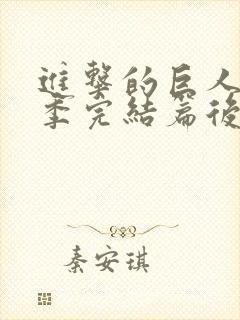 進擊的巨人
季完結篇後
秦安琪